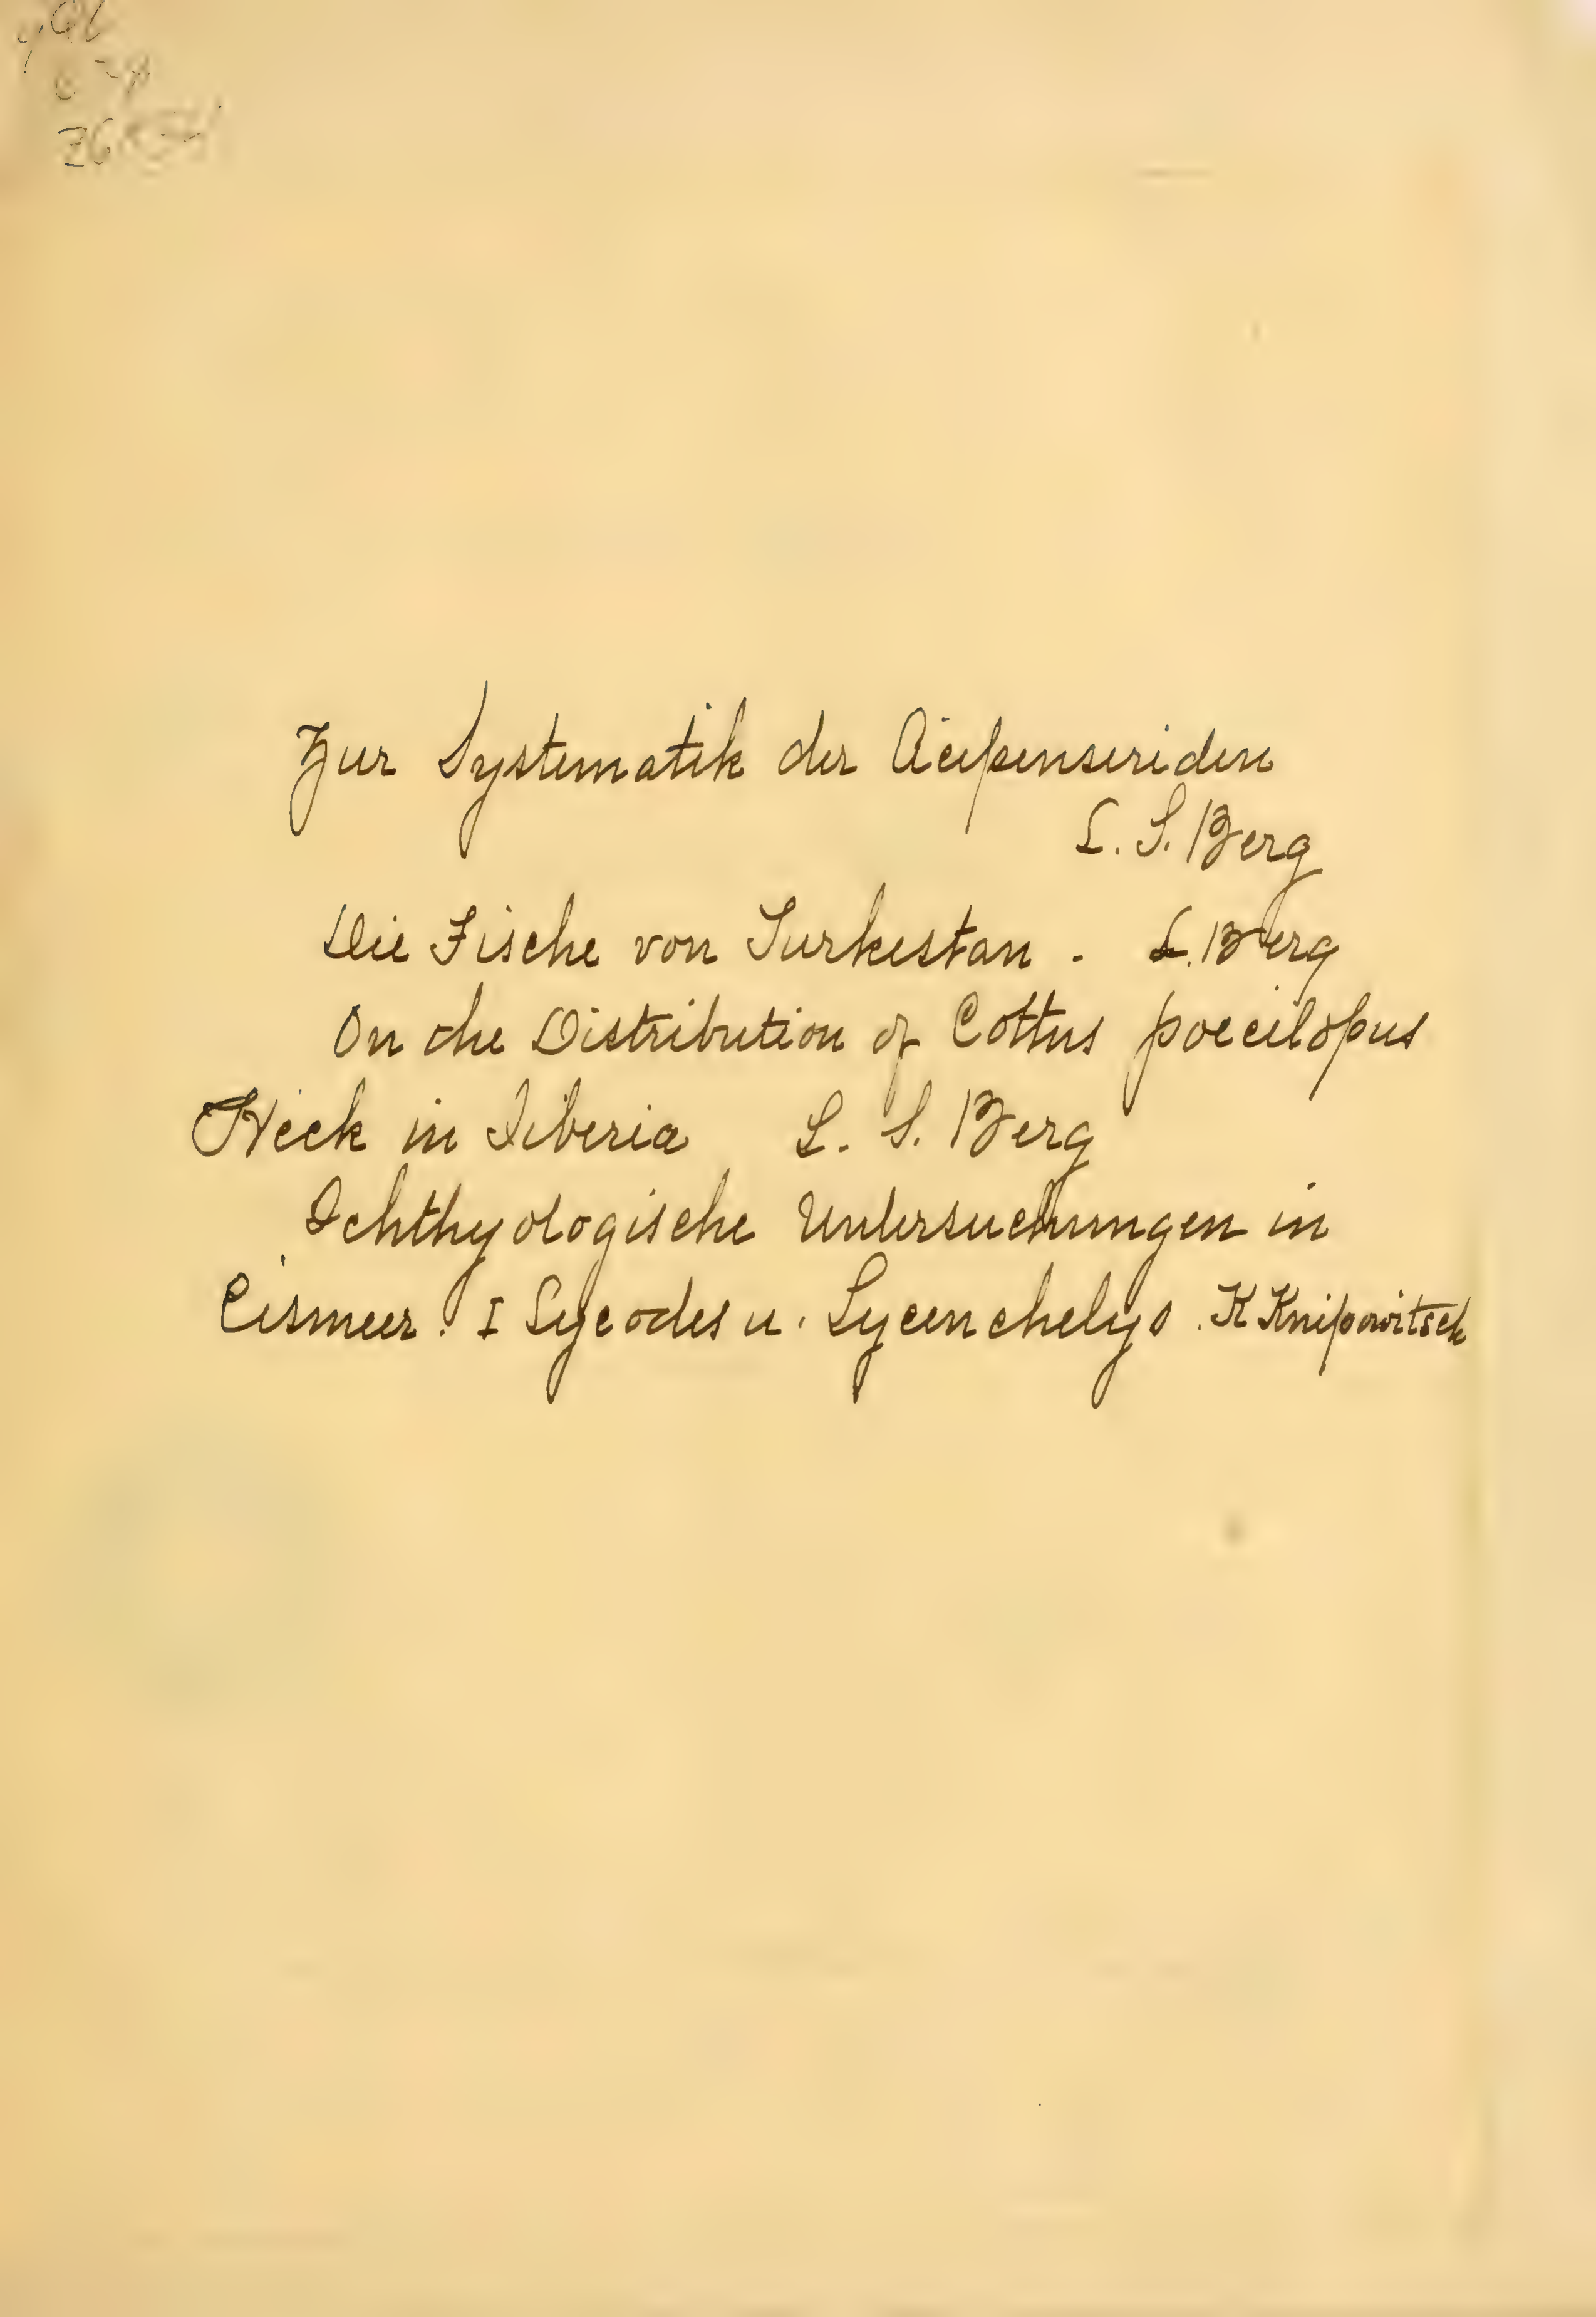 Zur Systematik der Acipenseriden
L. S. Berg
Die Fische von Turkestan . L. Berg
On the Distribution of Cottus poecilopus
Heck in Siberia L. S. Berg
Ichthyologische Untersuchungen in
Eismeer. I Lycodes u. Lycenchelys . K Knipowitsch